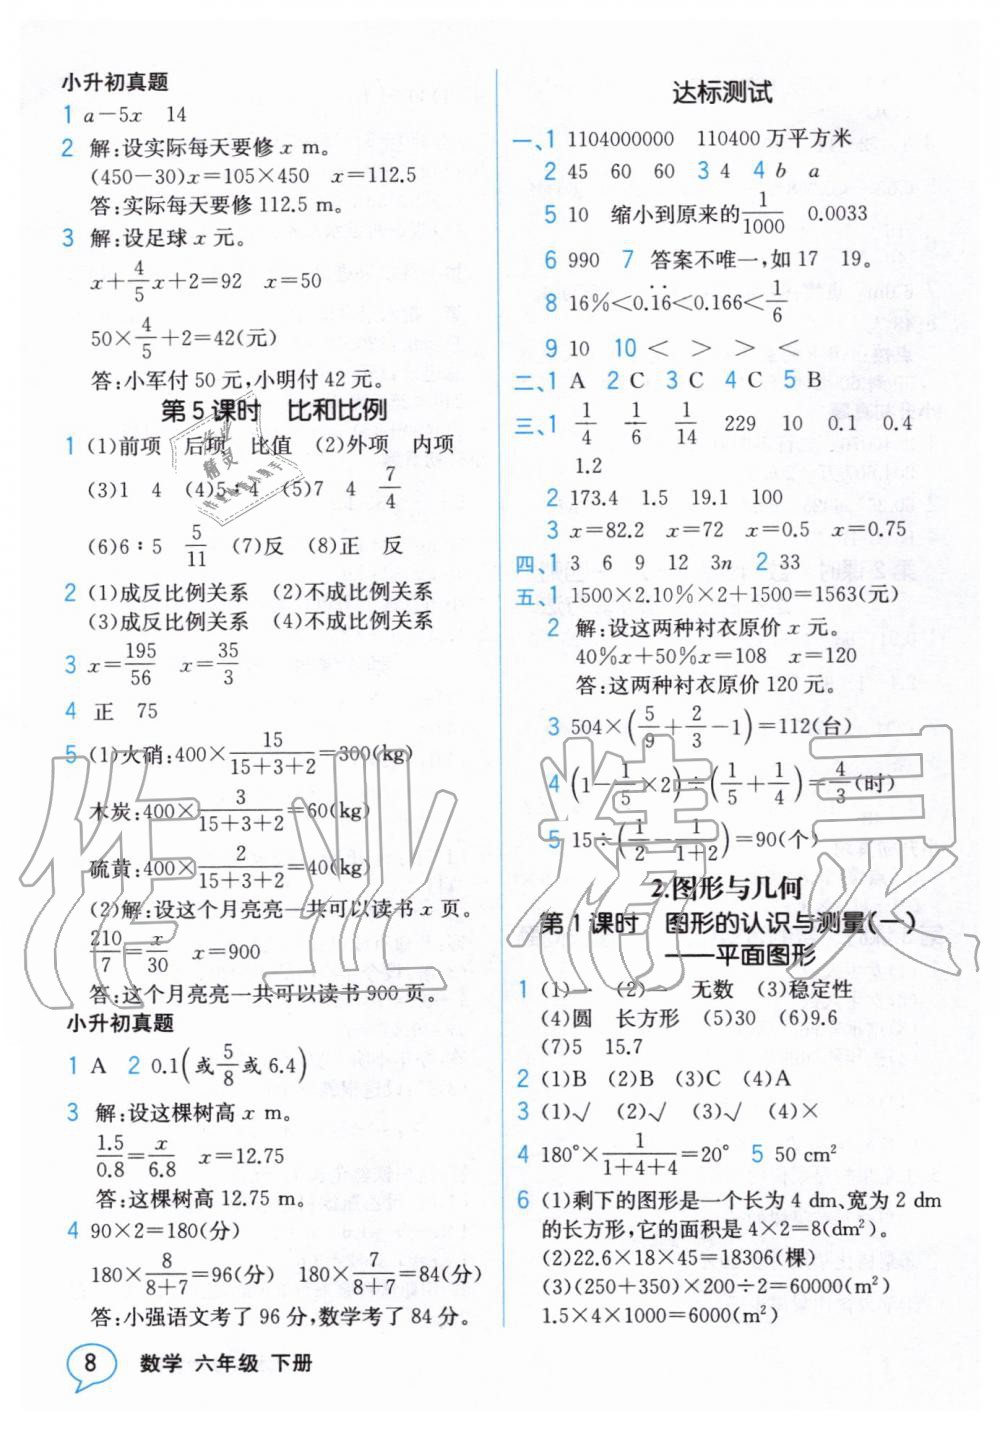 小升初真题
1 a－5x　14
2 解:设实际每天要修 x m。
(450－30)x＝105×450　x＝112.5
答:实际每天要修 112.5 m。
3 解:设足球 x 元。
x＋4/5x＋2＝92　x＝50
50×4/5＋2＝42(元)
答:小军付 50 元,小明付 42 元。
第 5 课时　比和比例
1 (1)前项　后项　比值　(2)外项　内项
(3)1　4　(4)5∶4　(5)7　4　7/4
(6)6∶5　5/11　(7)反　(8)正　反
2 (1)成反比例关系　(2)不成比例关系
(3)成反比例关系　(4)不成比例关系
3 x＝195/56　x＝35/3
4 正　75
5 (1)火硝:400×15/(15＋3＋2)＝300(kg)
木炭:400×3/(15＋3＋2)＝60(kg)
硫黄:400×2/(15＋3＋2)＝40(kg)
(2)解:设这个月亮亮一共可以读书 x 页。
210/7＝x/30　x＝900
答:这个月亮亮一共可以读书 900 页。
小升初真题
1 A　2 0.1(或5/8或 6.4)
3 解:设这棵树高 x m。
1.5/0.8＝x/6.8　x＝12.75
答:这棵树高 12.75 m。
4 90×2＝180(分)
180×8/(8＋7)＝96(分)　180×7/(8＋7)＝84(分)
答:小强语文考了 96 分,数学考了 84 分。
8 数学 六年级 下册
达标测试
一、1 1104000000　110400 万平方米
2 45　60　60　3 4　4 b　a
5 10　缩小到原来的1/1000　0.0033
6 990　7 答案不唯一,如 17　19。
8 16%<0.1̇6̇<0.166<1/6
9 10　10 <　>　>　<
二、1 A　2 C　3 C　4 C　5 B
三、1 1/4　1/6　1/14　229　10　0.1　0.4
1.2
2 173.4　1.5　19.1　100
3 x＝82.2　x＝72　x＝0.5　x＝0.75
四、1 3　6　9　12　3n　2 33
五、1 1500×2.10%×2＋1500＝1563(元)
2 解:设这两种衬衣原价 x 元。
40%x＋50%x＝108　x＝120
答:这两种衬衣原价 120 元。
3 504×(5/9＋2/3－1)＝112(台)
4 (1－1/5×2)÷(1/5＋1/4)＝4/3(时)
5 15÷(1/2－1/(1＋2))＝90(个)
2.图形与几何
第 1 课时　图形的认识与测量(一)
——平面图形
1 (1)一　(2)一　无数　(3)稳定性
(4)圆　长方形　(5)30　(6)9.6
(7)5　15.7
2 (1)B　(2)B　(3)C　(4)A
3 (1)√　(2)√　(3)√　(4)×
4 180°×1/(1＋4＋4)＝20°　5 50 cm²
6 (1)剩下的图形是一个长为 4 dm、宽为 2 dm
的长方形,它的面积是 4×2＝8(dm²)。
(2)22.6×18×45＝18306(棵)
(3)(250＋350)×200÷2＝60000(m²)
1.5×4×1000＝6000(m²)
作业精灵